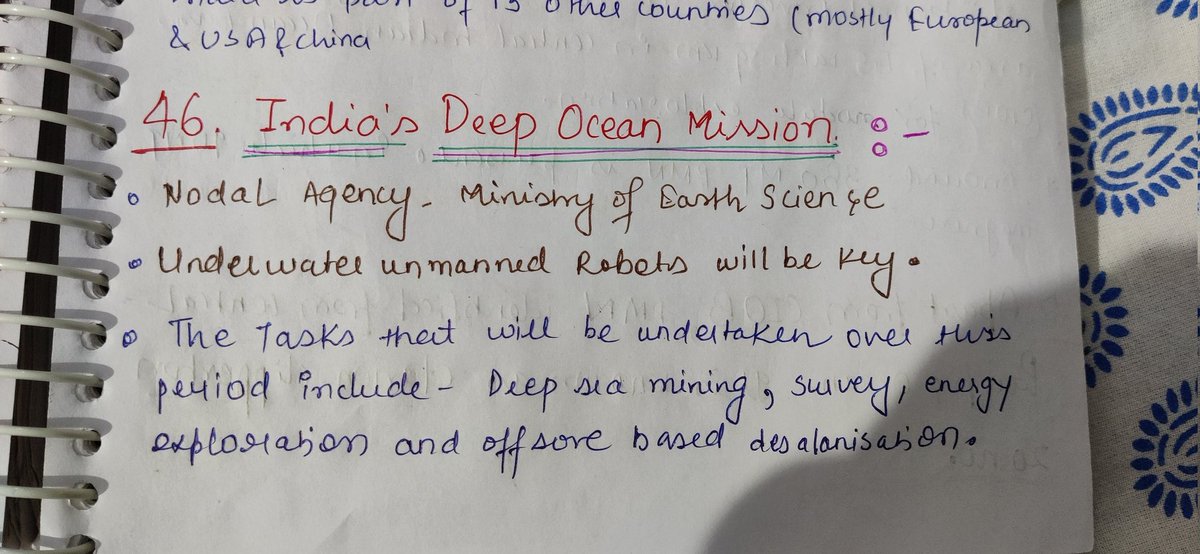 of 15 other countries (mostly European
& USA & China
46. India's Deep Ocean Mission :-
• Nodal Agency - Ministry of Earth Science
• Underwater unmanned Robots will be key.
• The Tasks that will be undertaken over this
period include - Deep sea mining, survey, energy
exploration and offsore based desalanisation.